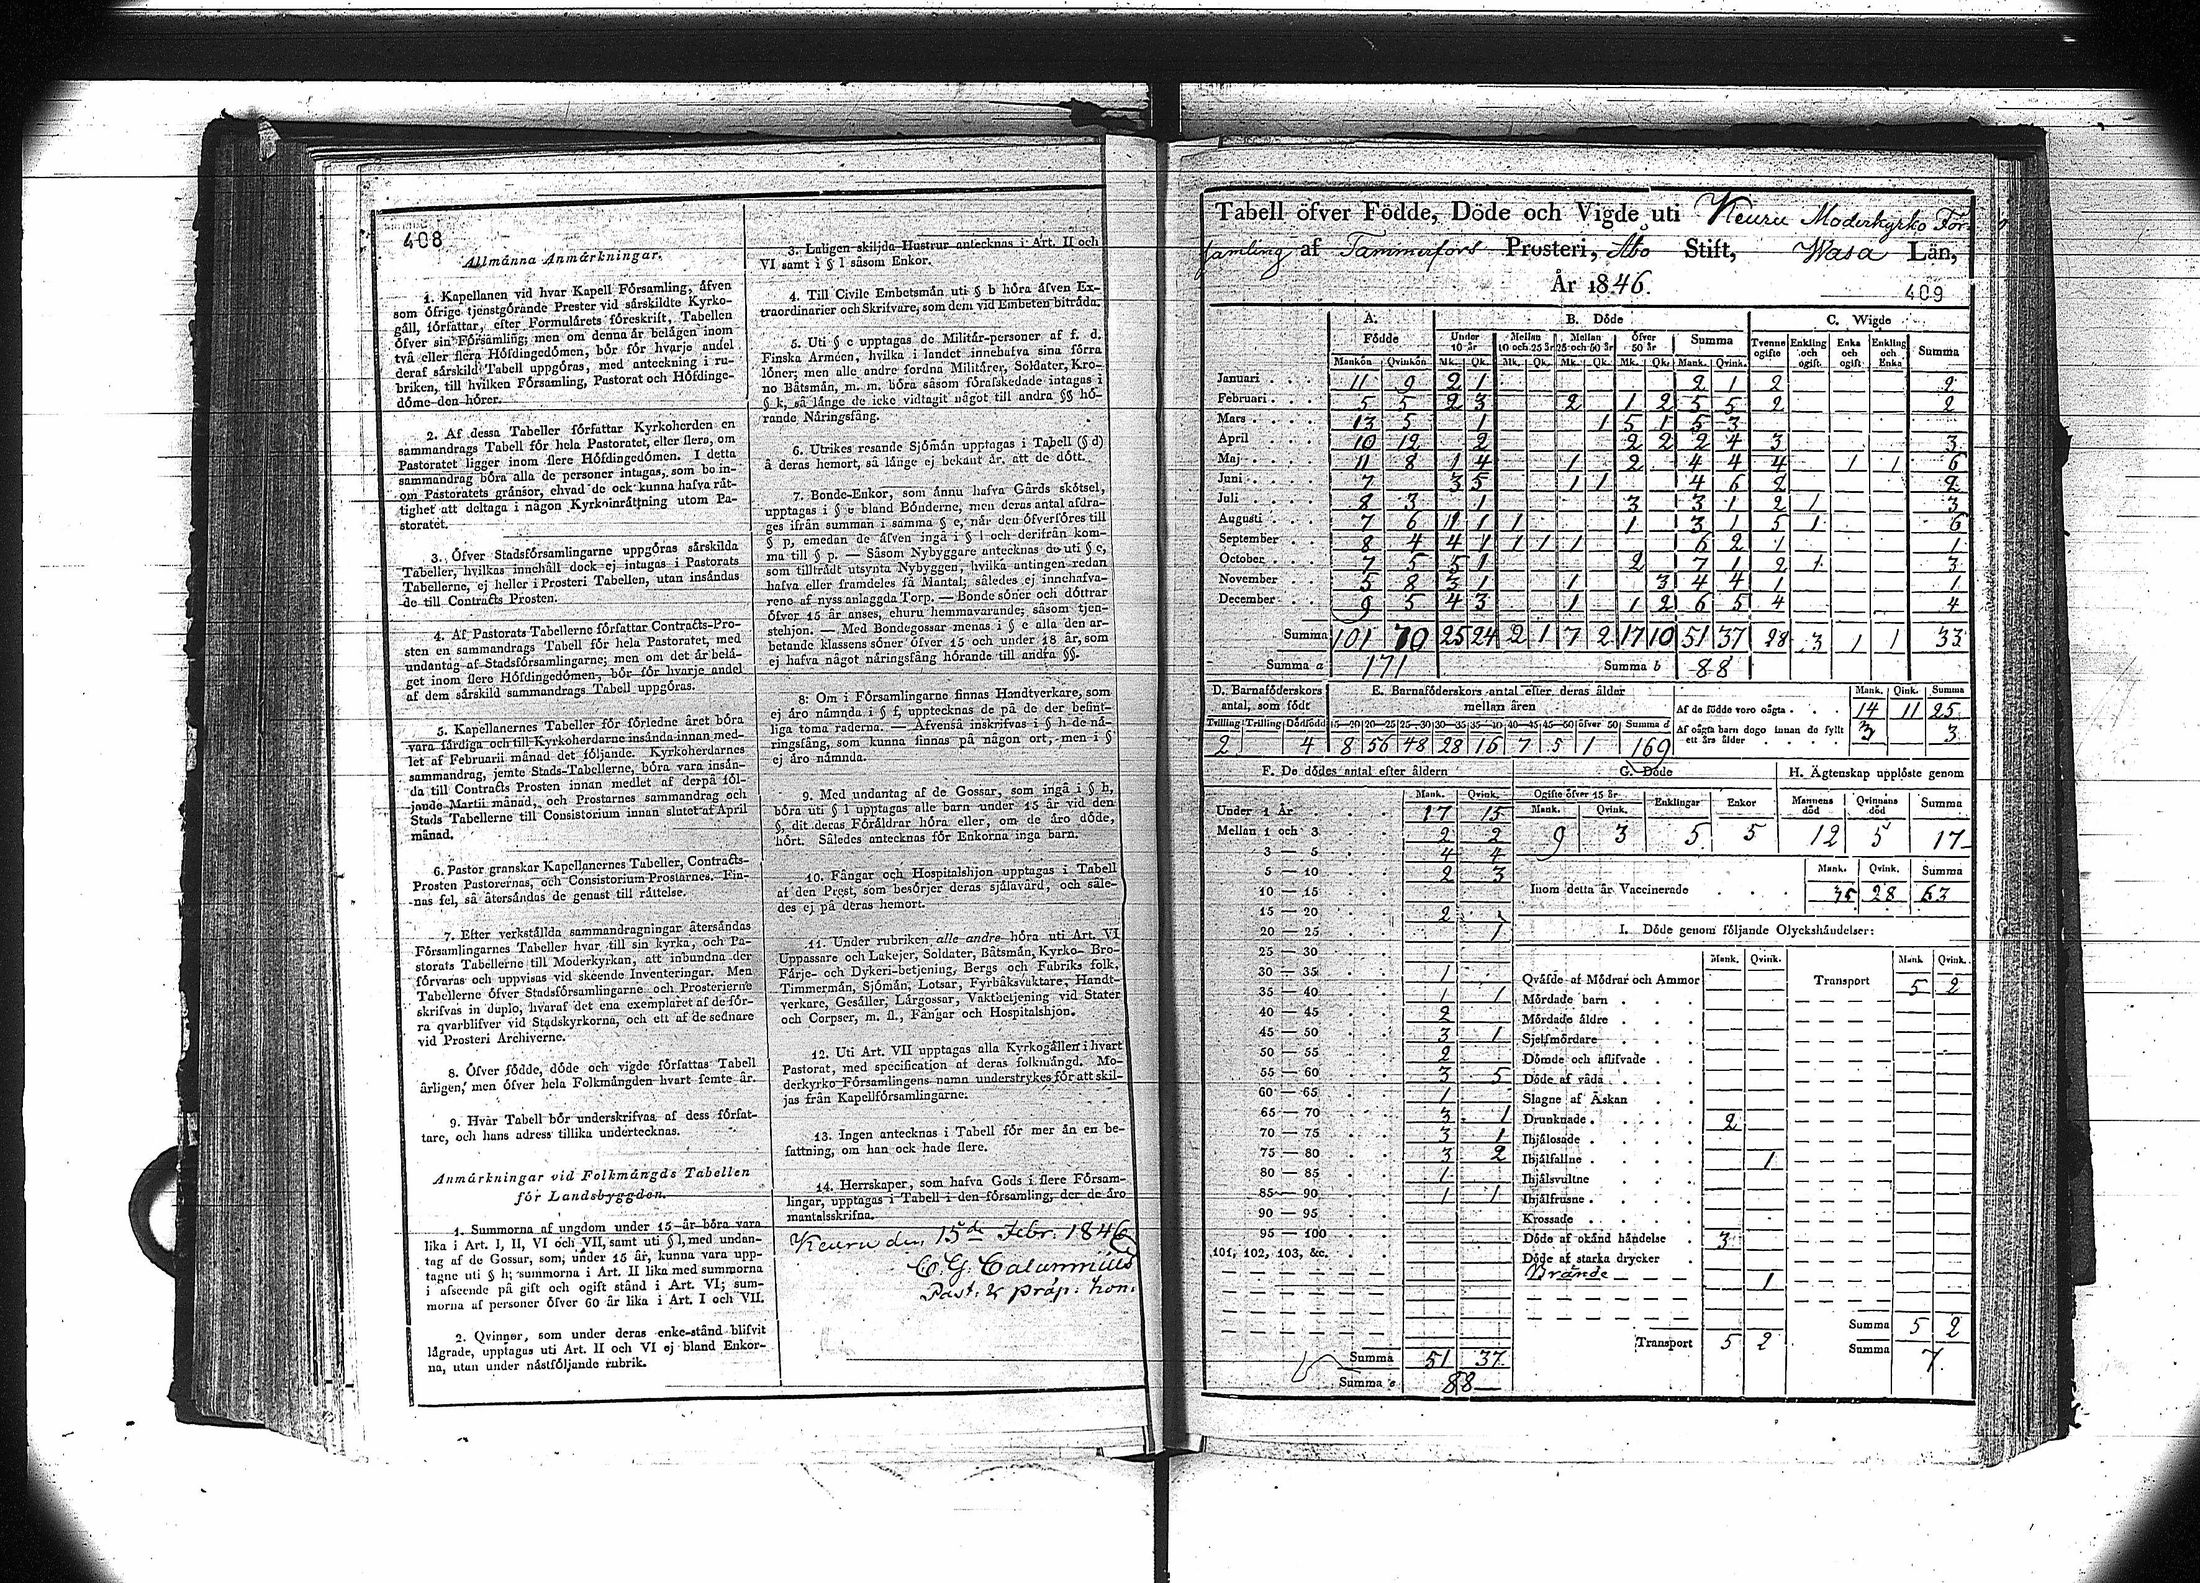 408
Allmänna Anmärkningar.
1. Kapellanen vid hvar Kapell Församling, äfven
som öfrige tjenstgörande Prester vid särskildte Kyrko-
gäll, författar, efter Formulärets föreskrift, Tabellen
öfver sin Församling; men om denna är belägen inom
två eller flera Höfdingedömen, bör för hvarje andel
deraf särskild Tabell uppgöras, med anteckning i ru-
briken, till hvilken Församling, Pastorat och Höfdinge-
döme den hörer.
2. Af dessa Tabeller författar Kyrkoherden en
sammandrags Tabell för hela Pastoratet, eller flera, om
Pastoratet ligger inom flere Höfdingedömen. I detta
sammandrag böra alla de personer intagas, som bo in-
om Pastoratets gränsor, ehvad de ock kunna hafva rät-
tighet att deltaga i någon Kyrkoinrättning utom Pa-
storatet.
3. Öfver Stadsförsamlingarne uppgöras särskilda
Tabeller, hvilkas innehåll dock ej intages i Pastorats
Tabellerne, ej heller i Prosteri Tabellen, utan insändas
de till Contracts Prosten.
4. Af Pastorats Tabellerne författar Contracts-Pro-
sten en sammandrags Tabell för hela Pastoratet, med
undantag af Stadsförsamlingarne; men om det är belä-
get inom flere Höfdingedömen, bör för hvarje andel
af dem särskild sammandrags Tabell uppgöras.
5. Kapellanernes Tabeller för förledne året böra
vara färdiga och till Kyrkoherdarne insända innan med-
let af Februarii månad det följande. Kyrkoherdarnes
sammandrag, jemte Stads-Tabellerne, böra vara insän-
da till Contracts Prosten innan medlet af derpå föl-
jande Martii månad, och Prostarnes sammandrag och
Stads Tabellerne till Consistorium innan slutet af April
månad.
6. Pastor granskar Kapellanernes Tabeller, Contracts-
Prosten Pastorernas, och Consistorium Prostarnes. Fin-
nas fel, så återsändas de genast till rättelse.
7. Efter verkställda sammandragningar återsändas
Församlingarnes Tabeller hvar till sin kyrka, och Pa-
storats Tabellerne till Moderkyrkan, att inbundna der
förvaras och uppvisas vid skeende Inventeringar. Men
Tabellerne öfver Stadsförsamlingarne och Prosterierne
skrifvas in duplo, hvaraf det ena exemplaret af de för-
ra qvarblifver vid Stadskyrkorna, och ett af de sednare
vid Prosteri Archiverne.
8. Öfver födde, döde och vigde författas Tabell
årligen, men öfver hela Folkmängden hvart femte år.
9. Hvar Tabell bör underskrifvas af dess förfat-
tare, och hans adress tillika undertecknas.
Anmärkningar vid Folkmängds Tabellen
för Landsbyggden.
1. Summorna af ungdom under 15 år böra vara
lika i Art. I, II, VI och VII, samt uti § l, med undan-
tag af de Gossar, som, under 15 år, kunna vara upp-
tagne uti § h; summorna i Art. II lika med summorna
i afseende på gift och ogift stånd i Art. VI; sum-
morna af personer öfver 60 år lika i Art. I och VII.
2. Qvinnor, som under deras enke-stånd blifvit
lägrade, upptagas uti Art. II och VI ej bland Enkor-
na, utan under nästföljande rubrik.
3. Laligen skiljda Hustrur antecknas i Art. II och
VI samt i § l såsom Enkor.
4. Till Civile Embetsmän uti § b höra äfven Ex-
traordinarier och Skrifvare, som dem vid Embeten biträda.
5. Uti § c upptagas de Militär-personer af f. d.
Finska Arméen, hvilka i landet innehafva sina förra
löner; men alle andre fordna Militärer, Soldater, Kro-
no Båtsmän, m. m. böra såsom förafskedade intagas i
§ k, så länge de icke vidtagit något till andra §§ hö-
rande Näringsfång.
6. Utrikes resande Sjömän upptagas i Tabell (§ d)
å deras hemort, så länge ej bekant är, att de dött.
7. Bonde-Enkor, som ännu hafva Gårds skötsel,
upptagas i § e bland Bönderne, men deras antal afdra-
ges ifrån summan i samma § e, når den öfverföres till
§ p, emedan de äfven ingå i § l och derifrån kom-
ma till § p. — Såsom Nybyggare antecknas de uti § e,
som tillträdt utsynta Nybyggen, hvilka antingen redan
hafva eller framdeles få Mantal; således ej innehafva-
rene af nyss anlaggda Torp. — Bonde söner och döttrar
öfver 15 år anses, ehuru hemmavarande, såsom tjen-
stehjon. — Med Bondegossar menas i § e alla den ar-
betande klassens söner öfver 15 och under 18 år, som
ej hafva något näringsfång hörande till andra §§.
8. Om i Församlingarne finnas Handtverkare, som
ej äro nämnda i § f, upptecknas de på de der befint-
liga toma raderna. — Äfvenså inskrifvas i § h de nä-
ringsfång, som kunna finnas på någon ort, men i §
ej äro nämnda.
9. Med undantag af de Gossar, som ingå i § h,
böra uti § l upptagas alle barn under 15 år vid den
§, dit deras Föräldrar höra eller, om de äro döde,
hört. Således antecknas för Enkorna inga barn.
10. Fångar och Hospitalshjon upptagas i Tabell
af den Prest, som besörjer deras själavård, och såle-
des ej på deras hemort.
11. Under rubriken alle andre höra uti Art. VI
Uppassare och Lakejer, Soldater, Båtsmän, Kyrko- Bro-
Färje- och Dykeri-betjening, Bergs och Fabriks folk,
Timmermän, Sjömän, Lotsar, Fyrbåksvaktare, Handt-
verkare, Gesäller, Lärgossar, Vaktbetjening vid Stater
och Corpser, m. fl., Fångar och Hospitalshjon.
12. Uti Art. VII upptagas alla Kyrkogällen i hvart
Pastorat, med specification af deras folkmängd. Mo-
derkyrko-Församlingens namn understrykes för att skil-
jas från Kapellförsamlingarne.
13. Ingen antecknas i Tabell för mer än en be-
fattning, om han ock hade flere.
14. Herrskaper, som hafva Gods i flere Försam-
lingar, upptagas i Tabell i den församling, der de äro
mantalsskrifna.
Keuru den 15de Febr. 1846
C. G. Calamnius
Past. & præp. hon.
Tabell öfver Födde, Döde och Vigde uti Keuru Moderkyrko För-
samling af Tammerfors Prosteri, Åbo Stift, Wasa Län,
År 1846.
409
A. B. Döde C. Wigde
Födde Under 10 år Mellan 10 och 25 år Mellan 25 och 50 år Öfver 50 år Summa Tvenne ogifte Enkling och ogift Enka och ogift Enkling och Enka Summa
Mankön Qvinkön Mk. Qk. Mk. Qk. Mk. Qk. Mk. Qk. Mank. Qvink.
Januari 11 9 2 1 2 1 2 2
Februari 5 5 2 3 2 1 2 5 5 2 2
Mars 13 5 1 1 5 1 5 3
April 10 12 2 2 2 2 4 3 3
Maj 11 8 1 4 1 2 4 4 4 1 1 6
Juni 7 3 5 1 1 4 6 2 2
Juli 8 3 1 3 3 1 2 1 3
Augusti 7 6 1 1 1 1 3 1 5 1 6
September 8 4 4 1 1 1 1 6 2 1 1
October 7 5 5 1 2 7 1 2 1 3
November 5 8 3 1 1 3 4 4 1 1
December 9 5 4 3 1 1 2 6 5 4 4
Summa 101 70 25 24 2 1 7 2 17 10 51 37 28 3 1 1 33
Summa a 171 Summa b 88
D. Barnaföderskors antal, som födt
Tvilling Trilling Dödfödd
2 4
E. Barnaföderskors antal efter deras ålder
mellan åren
15—20 20—25 25—30 30—35 35—40 40—45 45—50 öfver 50 Summa d
8 56 48 28 16 7 5 1 169
Mank. Qink. Summa
Af de födde voro oägta 14 11 25
Af oägta barn dogo innan de fyllt
ett års ålder 3 3
F. De dödes antal efter åldern
Mank. Qvink.
Under 1 År 17 15
Mellan 1 och 3 2 2
3 — 5 4 4
5 — 10 2 3
10 — 15
15 — 20 2
20 — 25 1
25 — 30
30 — 35 1
35 — 40 1 1
40 — 45 2
45 — 50 3 1
50 — 55 2
55 — 60 3 5
60 — 65 1
65 — 70 3 1
70 — 75 3 1
75 — 80 3 2
80 — 85 1
85 — 90 1 1
90 — 95
95 — 100
101, 102, 103, &c.
Summa 51 37
Summa e 88
G. Döde
Ogifte öfver 15 år Enklingar Enkor
Mank. Qvink.
9 3 5 5
H. Ägtenskap upplöste genom
Mannens död Qvinnans död Summa
12 5 17
Mank. Qvink. Summa
Inom detta år Vaccinerade 35 28 63
I. Döde genom följande Olyckshändelser:
Mank. Qvink. Mank Qvink.
Qväfde af Mödrar och Ammor Transport 5 2
Mördade barn
Mördade äldre
Sjelfmördare
Dömde och aflifvade
Döde af våda
Slagne af Åskan
Drunknade 2
Ihjälosade
Ihjälfallne 1
Ihjälsvultne
Ihjälfrusne
Krossade
Döde af okänd händelse 3
Döde af starka drycker
Brände 1
Transport 5 2
Summa 5 2
Summa 7